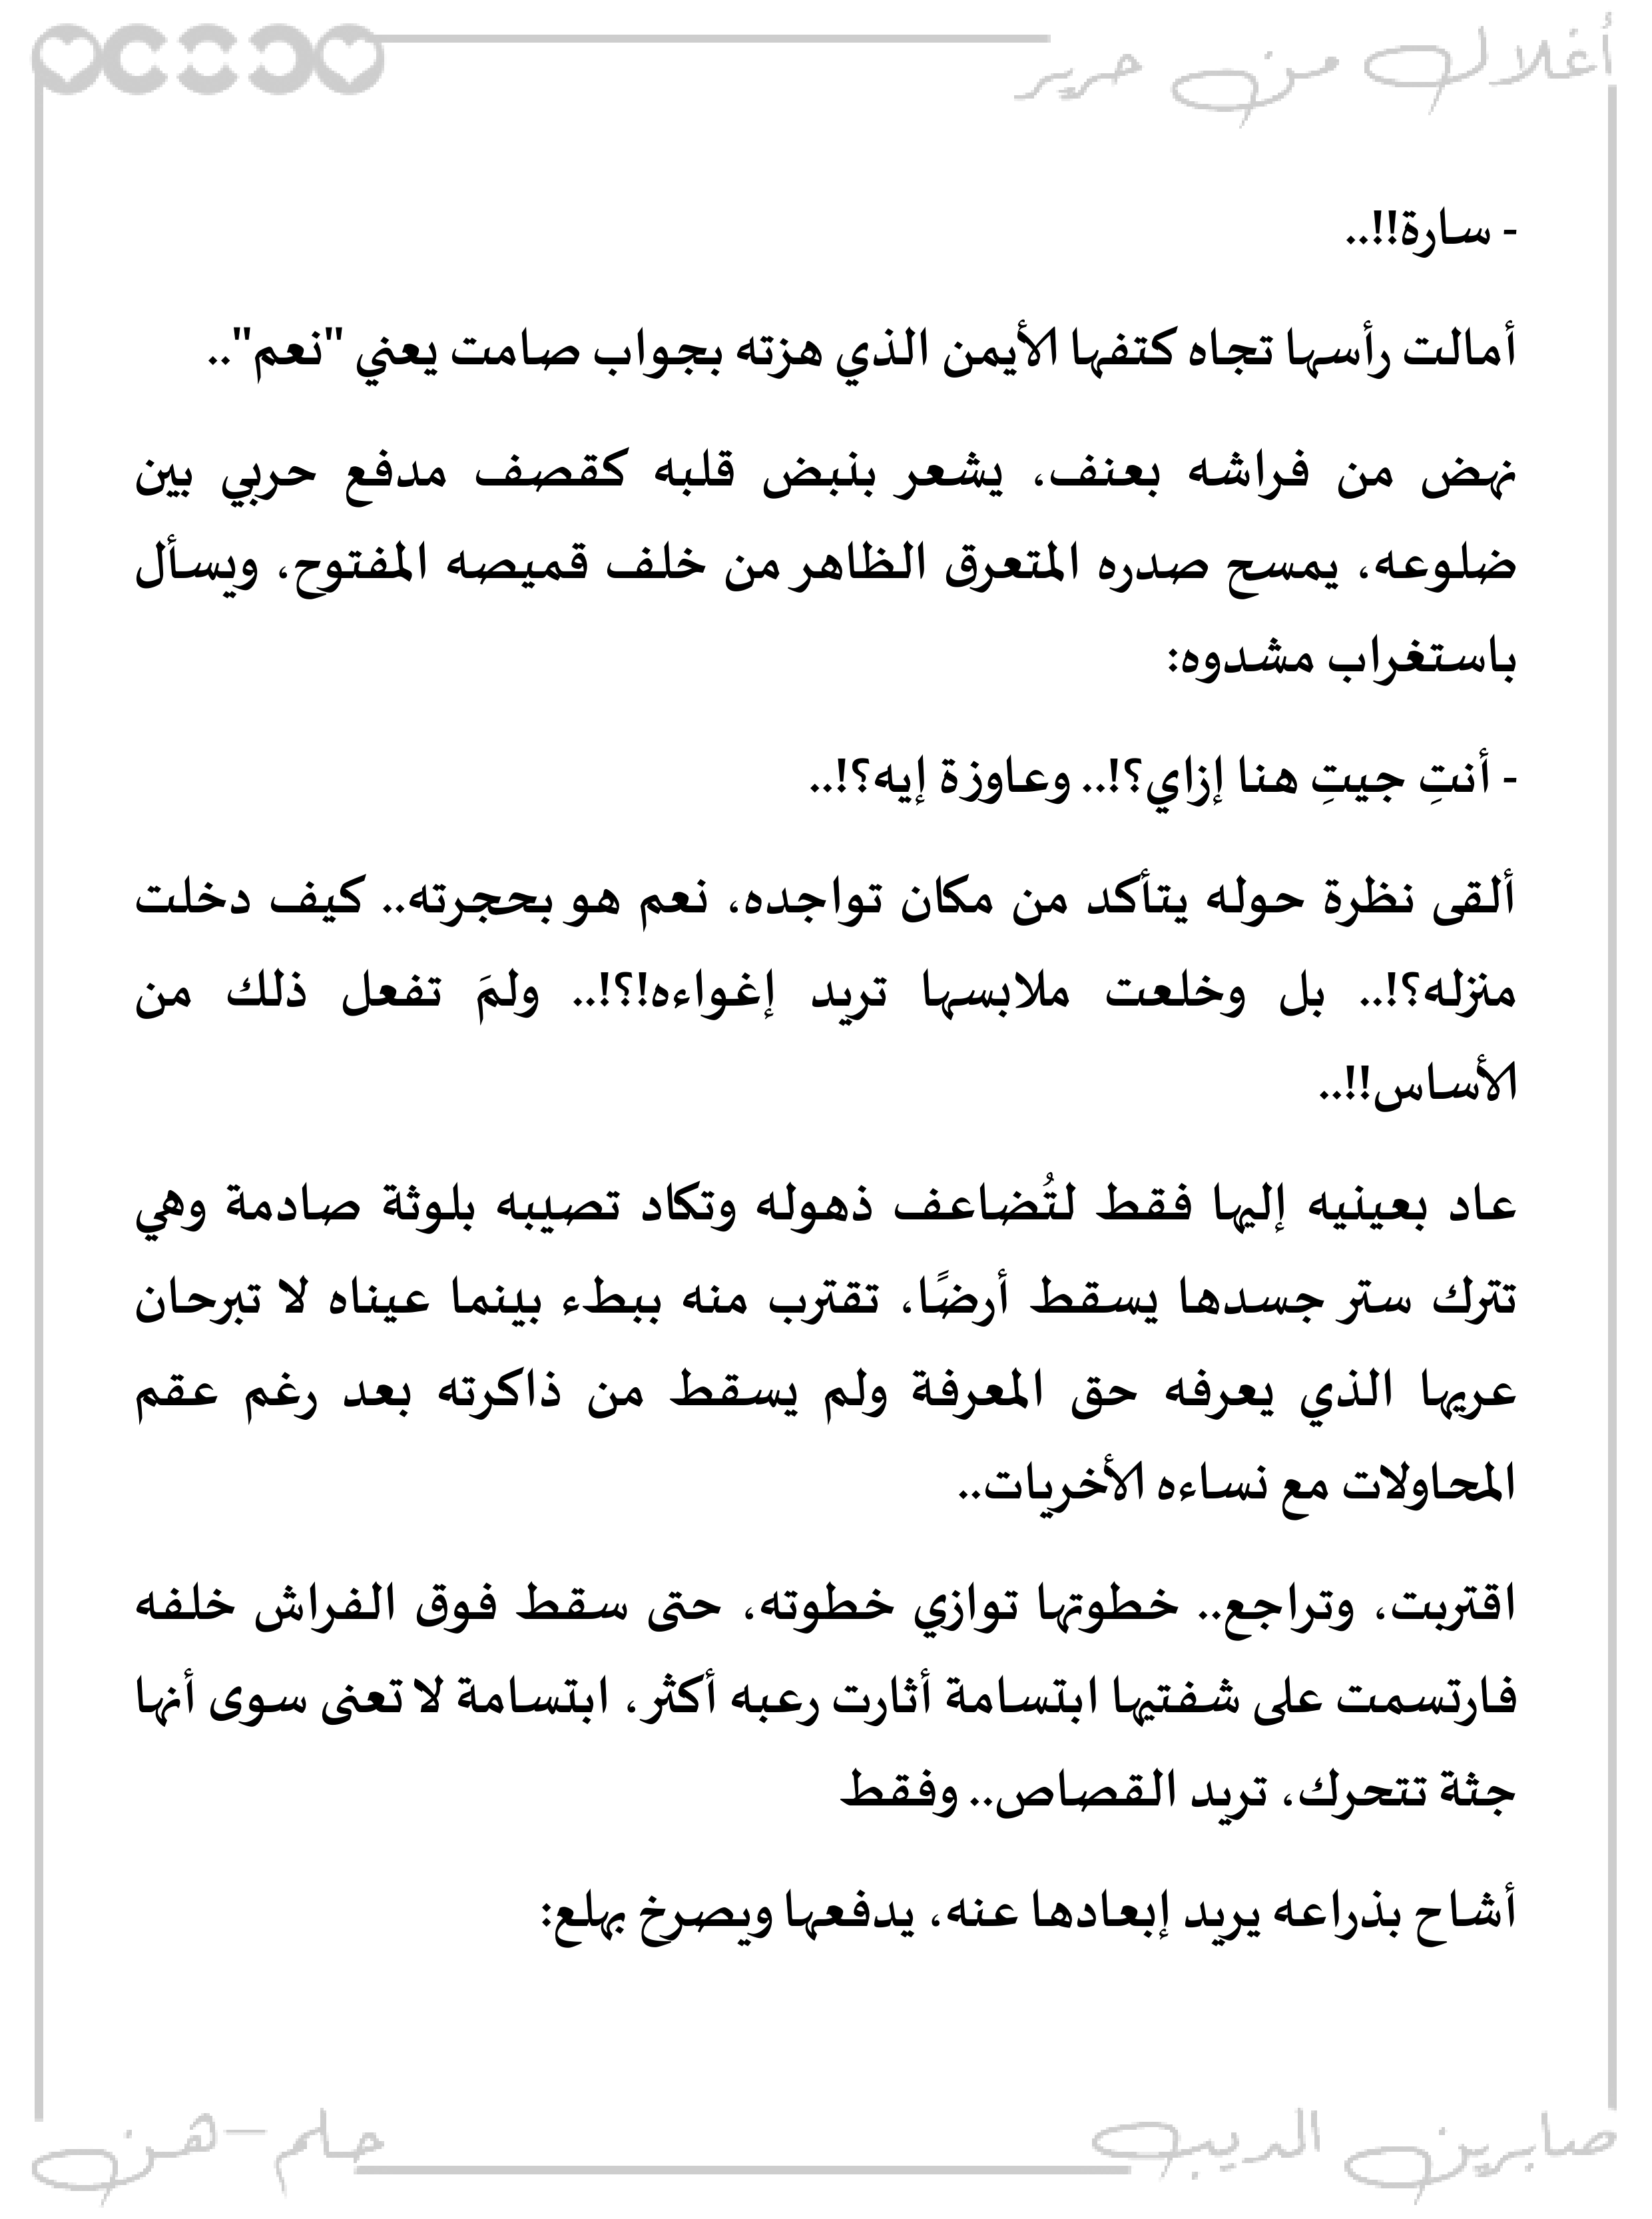 أغلال من حرير
- سارة!!..
أمالت رأسها تجاه كتفها الأيمن الذي هزته بجواب صامت يعني "نعم"..
نهض من فراشه بعنف، يشعر بنبض قلبه كقصف مدفع حربي بين
ضلوعه، يمسح صدره المتعرق الظاهر من خلف قميصه المفتوح، ويسأل
باستغراب مشدوه:
- أنتِ جيتِ هنا إزاي؟!.. وعاوزة إيه؟!..
ألقى نظرة حوله يتأكد من مكان تواجده، نعم هو بحجرته.. كيف دخلت
منزله؟!.. بل وخلعت ملابسها تريد إغواءه!؟!.. ولمَ تفعل ذلك من
الأساس!!..
عاد بعينيه إليها فقط لتُضاعف ذهوله وتكاد تصيبه بلوثة صادمة وهي
تترك ستر جسدها يسقط أرضًا، تقترب منه ببطء بينما عيناه لا تبرحان
عريها الذي يعرفه حق المعرفة ولم يسقط من ذاكرته بعد رغم عقم
المحاولات مع نساءه الأخريات..
اقتربت، وتراجع.. خطوتها توازي خطوته، حتى سقط فوق الفراش خلفه
فارتسمت على شفتيها ابتسامة أثارت رعبه أكثر، ابتسامة لا تعنى سوى أنها
جثة تتحرك، تريد القصاص.. وفقط
أشاح بذراعه يريد إبعادها عنه، يدفعها ويصرخ بهلع:
صابرين الديب
حلم-هن